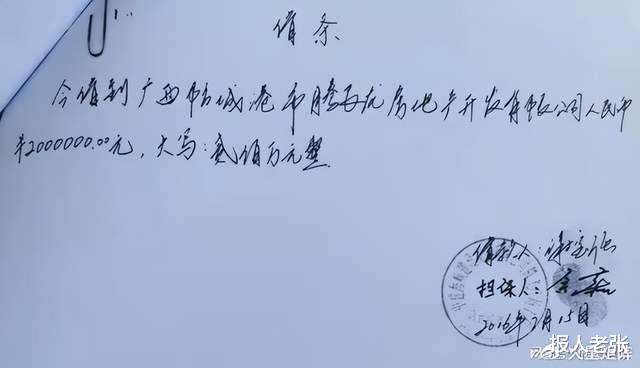 借条
今借到广西防城港市腾飞龙房地产开发有限公司人民币
¥2000000.00元，大写：贰佰万元整
借款人：
担保人：
2016年2月15日
报人老张